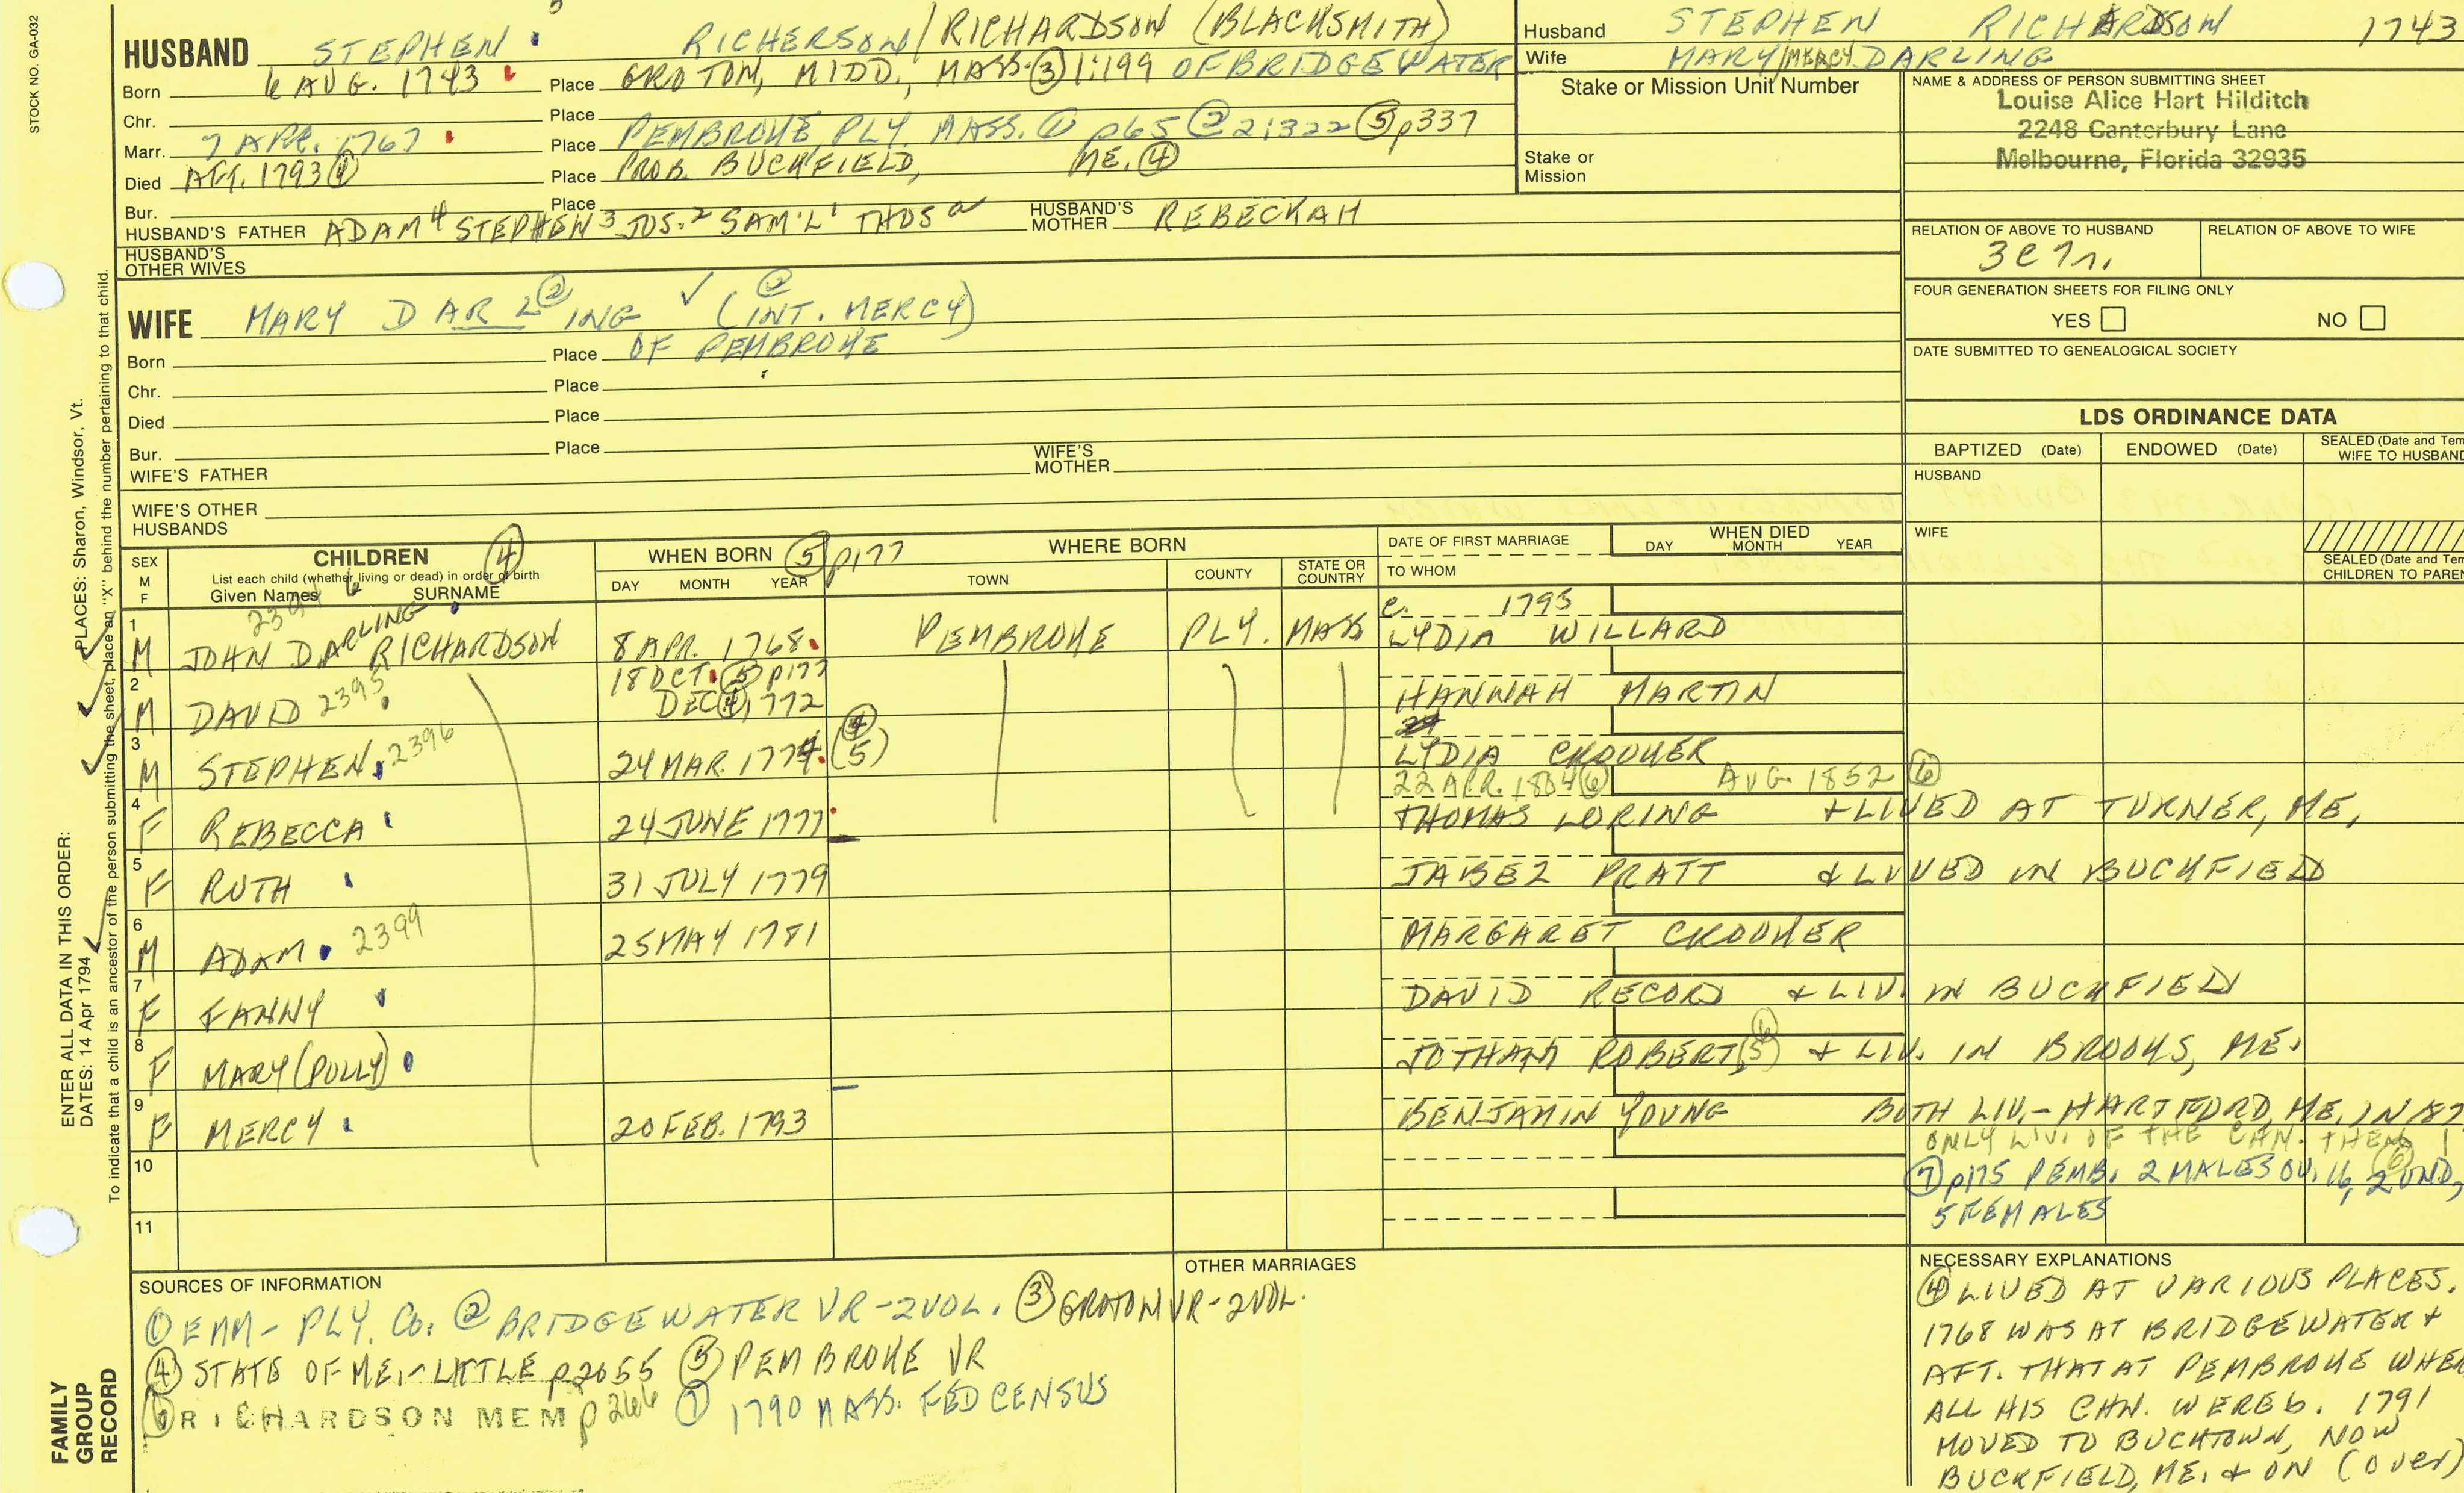 STOCK NO. GA-032
HUSBAND STEPHEN RICHERSON/RICHARDSON (BLACKSMITH)
Born 6 AUG. 1743 Place GROTON, MIDD, MASS. ③ 1:199 OF BRIDGEWATER
Chr. Place
Marr. 7 APR. 1767 Place PEMBROKE, PLY. MASS. ① p65 ② 2:322 ⑤ p337
Died AFT. 1793 ④ Place PROB. BUCKFIELD, ME. ④
Bur. Place
HUSBAND'S FATHER ADAM 4 STEPHEN 3 JOS. 2 SAM'L 1 THOS a HUSBAND'S MOTHER REBECKAH
HUSBAND'S OTHER WIVES
WIFE MARY DARLING ② ✓ (INT. MERCY) ②
Born Place OF PEMBROKE
Chr. Place
Died Place
Bur. Place
WIFE'S FATHER WIFE'S MOTHER
WIFE'S OTHER HUSBANDS
Husband STEPHEN RICHARDSON 1743
Wife MARY/MERCY DARLING
Stake or Mission Unit Number
Stake or Mission
NAME & ADDRESS OF PERSON SUBMITTING SHEET
Louise Alice Hart Hilditch
2248 Canterbury Lane
Melbourne, Florida 32935
RELATION OF ABOVE TO HUSBAND RELATION OF ABOVE TO WIFE
FOUR GENERATION SHEETS FOR FILING ONLY
YES NO
DATE SUBMITTED TO GENEALOGICAL SOCIETY
LDS ORDINANCE DATA
BAPTIZED (Date) ENDOWED (Date) SEALED (Date and Tem
WIFE TO HUSBAND
HUSBAND
WIFE
SEALED (Date and Tem
CHILDREN TO PAREN
SEX M F CHILDREN ④ WHEN BORN ⑤ p177 WHERE BORN DATE OF FIRST MARRIAGE WHEN DIED
List each child (whether living or dead) in order of birth
Given Names SURNAME DAY MONTH YEAR TOWN COUNTY STATE OR COUNTRY TO WHOM DAY MONTH YEAR
2394 DARLING c. 1795
1 M JOHN DARLING RICHARDSON 8 APR. 1768 PEMBROKE PLY. MASS LYDIA WILLARD
18 OCT. ⑤ p177
2 M DAVID 2395 DEC ④ 1772 HANNAH MARTIN
3 M STEPHEN 2396 24 MAR. 1774 ④ (5) LYDIA CROOKER
22 APR. 1804 ⑥ AUG. 1852 ⑥
4 F REBECCA 24 JUNE 1777 THOMAS LORING + LIVED AT TURNER, ME,
5 F RUTH 31 JULY 1779 JABEZ PRATT & LIVED IN BUCKFIELD
6 M ADAM 2399 25 MAY 1781 MARGARET CROOKER
7 F FANNY DAVID RECORD + LIV. IN BUCKFIELD
8 F MARY (POLLY) JOTHAM ROBERT(S) ⑥ + LIV. IN BROOKS, ME.
9 F MERCY 20 FEB. 1793 BENJAMIN YOUNG BOTH LIV. - HARTFORD, ME. IN 187
ONLY LIV. OF THE CHN. THEN ⑥
10
⑦ p175 PEMB. 2 MALES OV. 16, 2 UND,
5 FEMALES
11
SOURCES OF INFORMATION
① EMM - PLY. CO. ② BRIDGEWATER VR - 2 VOL. ③ GROTON VR - 2 VOL.
④ STATE OF ME. - LITTLE p2055 ⑤ PEMBROKE VR
⑥ RICHARDSON MEM p266 ⑦ 1790 MASS. FED CENSUS
OTHER MARRIAGES
NECESSARY EXPLANATIONS
④ LIVED AT VARIOUS PLACES.
1768 WAS AT BRIDGEWATER +
AFT. THAT AT PEMBROKE WHER
ALL HIS CHN. WERE b. 1791
MOVED TO BUCKTOWN, NOW
BUCKFIELD, ME. + ON (over)
ENTER ALL DATA IN THIS ORDER:
DATES: 14 Apr 1794 PLACES: Sharon, Windsor, Vt.
To indicate that a child is an ancestor of the person submitting the sheet, place an "X" behind the number pertaining to that child.
FAMILY
GROUP
RECORD